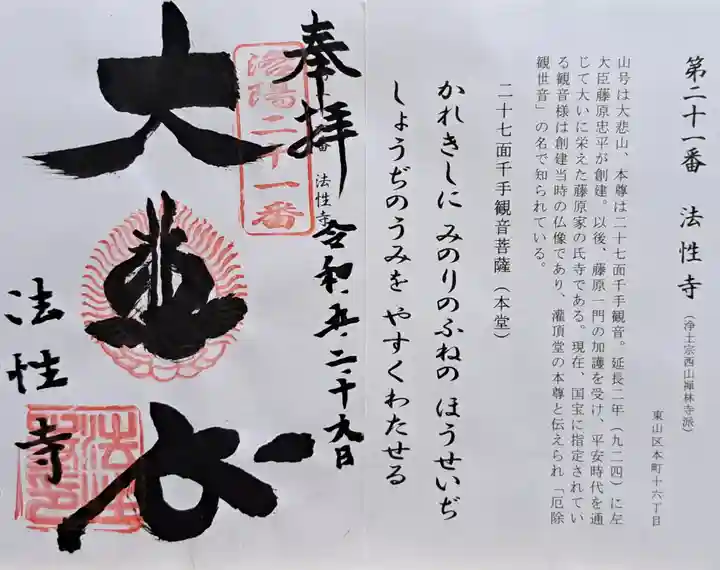 第二十一番 法性寺(浄土宗西山禅林寺派)
東山区本町十六丁目
山号は大悲山、本尊は二十七面千手観音。延長二年(九二四)に左
大臣藤原忠平が創建。以後、藤原一門の加護を受け、平安時代を通
じて大いに栄えた藤原家の氏寺である。現在、国宝に指定されてい
る観音様は創建当時の仏像であり、灌頂堂の本尊と伝えられ「厄除
観世音」の名で知られている。
二十七面千手観音菩薩(本堂)
かれきしに みのりのふねの ほうせいぢ
しょうぢのうみを やすくわたせる
奉拝
法性寺
令和五・二・十九日
洛陽二十一番
大悲
法性寺